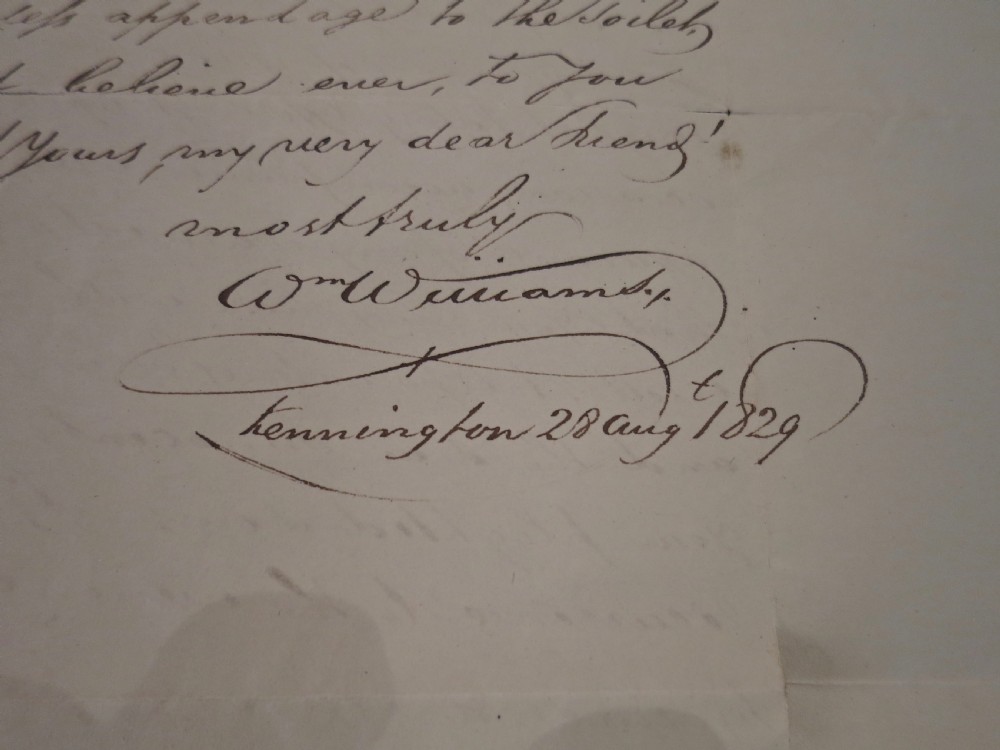 less appendage to the Toilet,
believe ever, to you
Yours, my very dear Friend!
most truly
Wm Williams.
Kennington 28 augt 1829